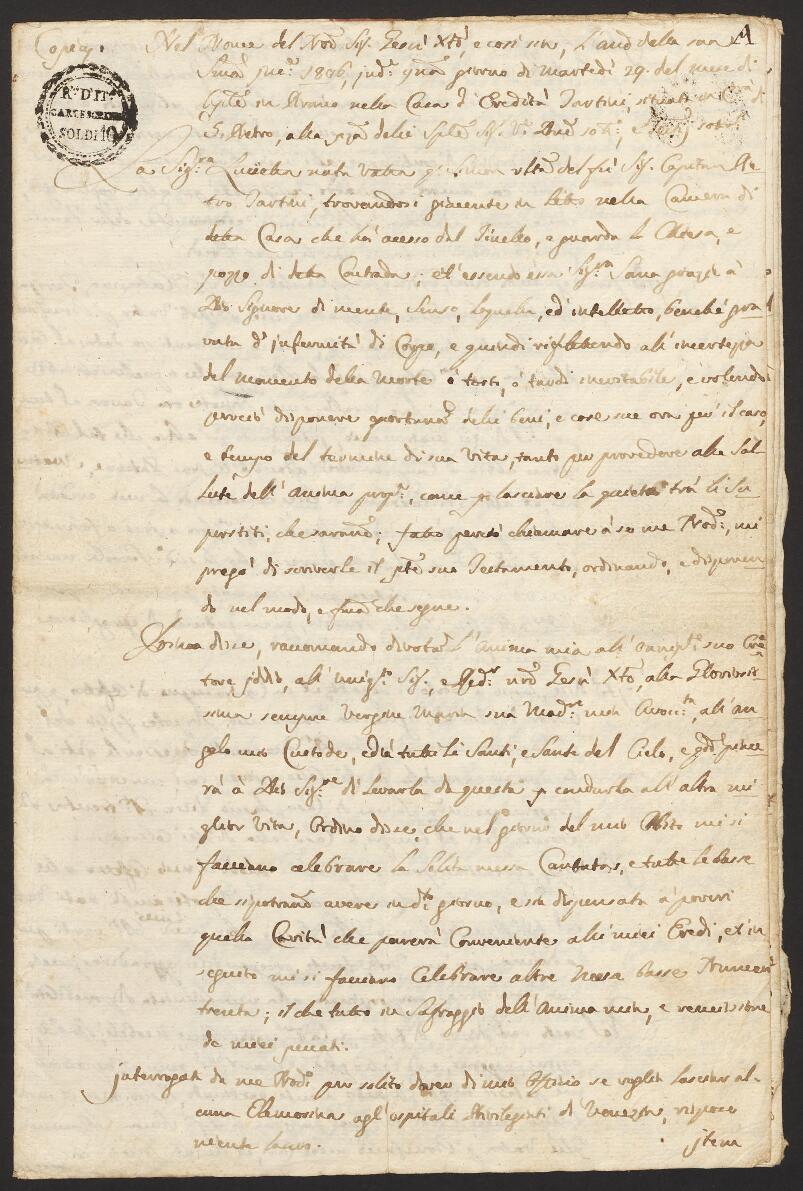 Copia. Nel Nome del Nro Sigr Gesù Xto, e così sia, L'anno della sua A
1806, giorno di martedì 29 del mese di
in Pirano nella Casa d'Eredità Tartini, situata in
S. Pietro, alla
R.º D'IT.ª
CARTE
SOLDI 10
La Sig.ra Lucietta nata del fù Sigr Capitan Pie
tro Tartini, trovandosi giacente in letto nella Camera di
detta Casa che hà acesso dal Tinello, e guarda la Chiesa, e
pozzo di detta Contrada; et essendo essa Sig.ra Sana grazie à
Dio Signore di mente, Senso, Loquella, ed intelletto, benché gra
vata d'infermità di Corpo, e quindi riflettendo all'incertezza
del momento della Morte ò tosto, ò tardi inevitabile, e volendo
perciò disporre delli beni, e cose sue ora per il caso,
e tempo del termine di sua Vita, tanto per provedere alla Sal
lute dell'Anima prop.a, come p lasciare la quiete trà li Su
perstiti, che saranno; fatto perciò chiamare à se me Nod.o, mi
pregò di scriverle il pnte suo Testamento, ordinando, e disponen
do nel modo, e forma che segue.
Prima disse, raccomando divotate l'Anima mia all'Onnipte suo Crea
tore Iddio, all'unig.to Sigr, e Redr nro Gesù Xto, alla Gloriosis
sima sempre Vergine Maria sua Madre mia Avocta, all'An
gelo mio Custode, ed à tutti li Santi, e Sante del Cielo, e qdo piace
rà à Dio Sig.re di Levarla da questa p condurla all'altra mi
glior Vita, Ordino disse, che nel giorno del mio Obito mi si
facciano celebrare la Solita messa Cantata, e tutte le basse
che si potranno avere in dto giorno, e sia dispensata à poveri
quella Carità che parerà Conveniente alli miei Eredi, et in
seguito mi si facciano Celebrare altre Messe basse Numero
trenta; il che tutto in Suffraggio dell'Anima mia, e remissione
de miei peccati.
Interrogata da me Nod.o per solito dover di mio Officio se voglia lasciar al
cuna Elemosina agl'ospitali Privilegiati di Venezia, rispose
niente lascio. Item